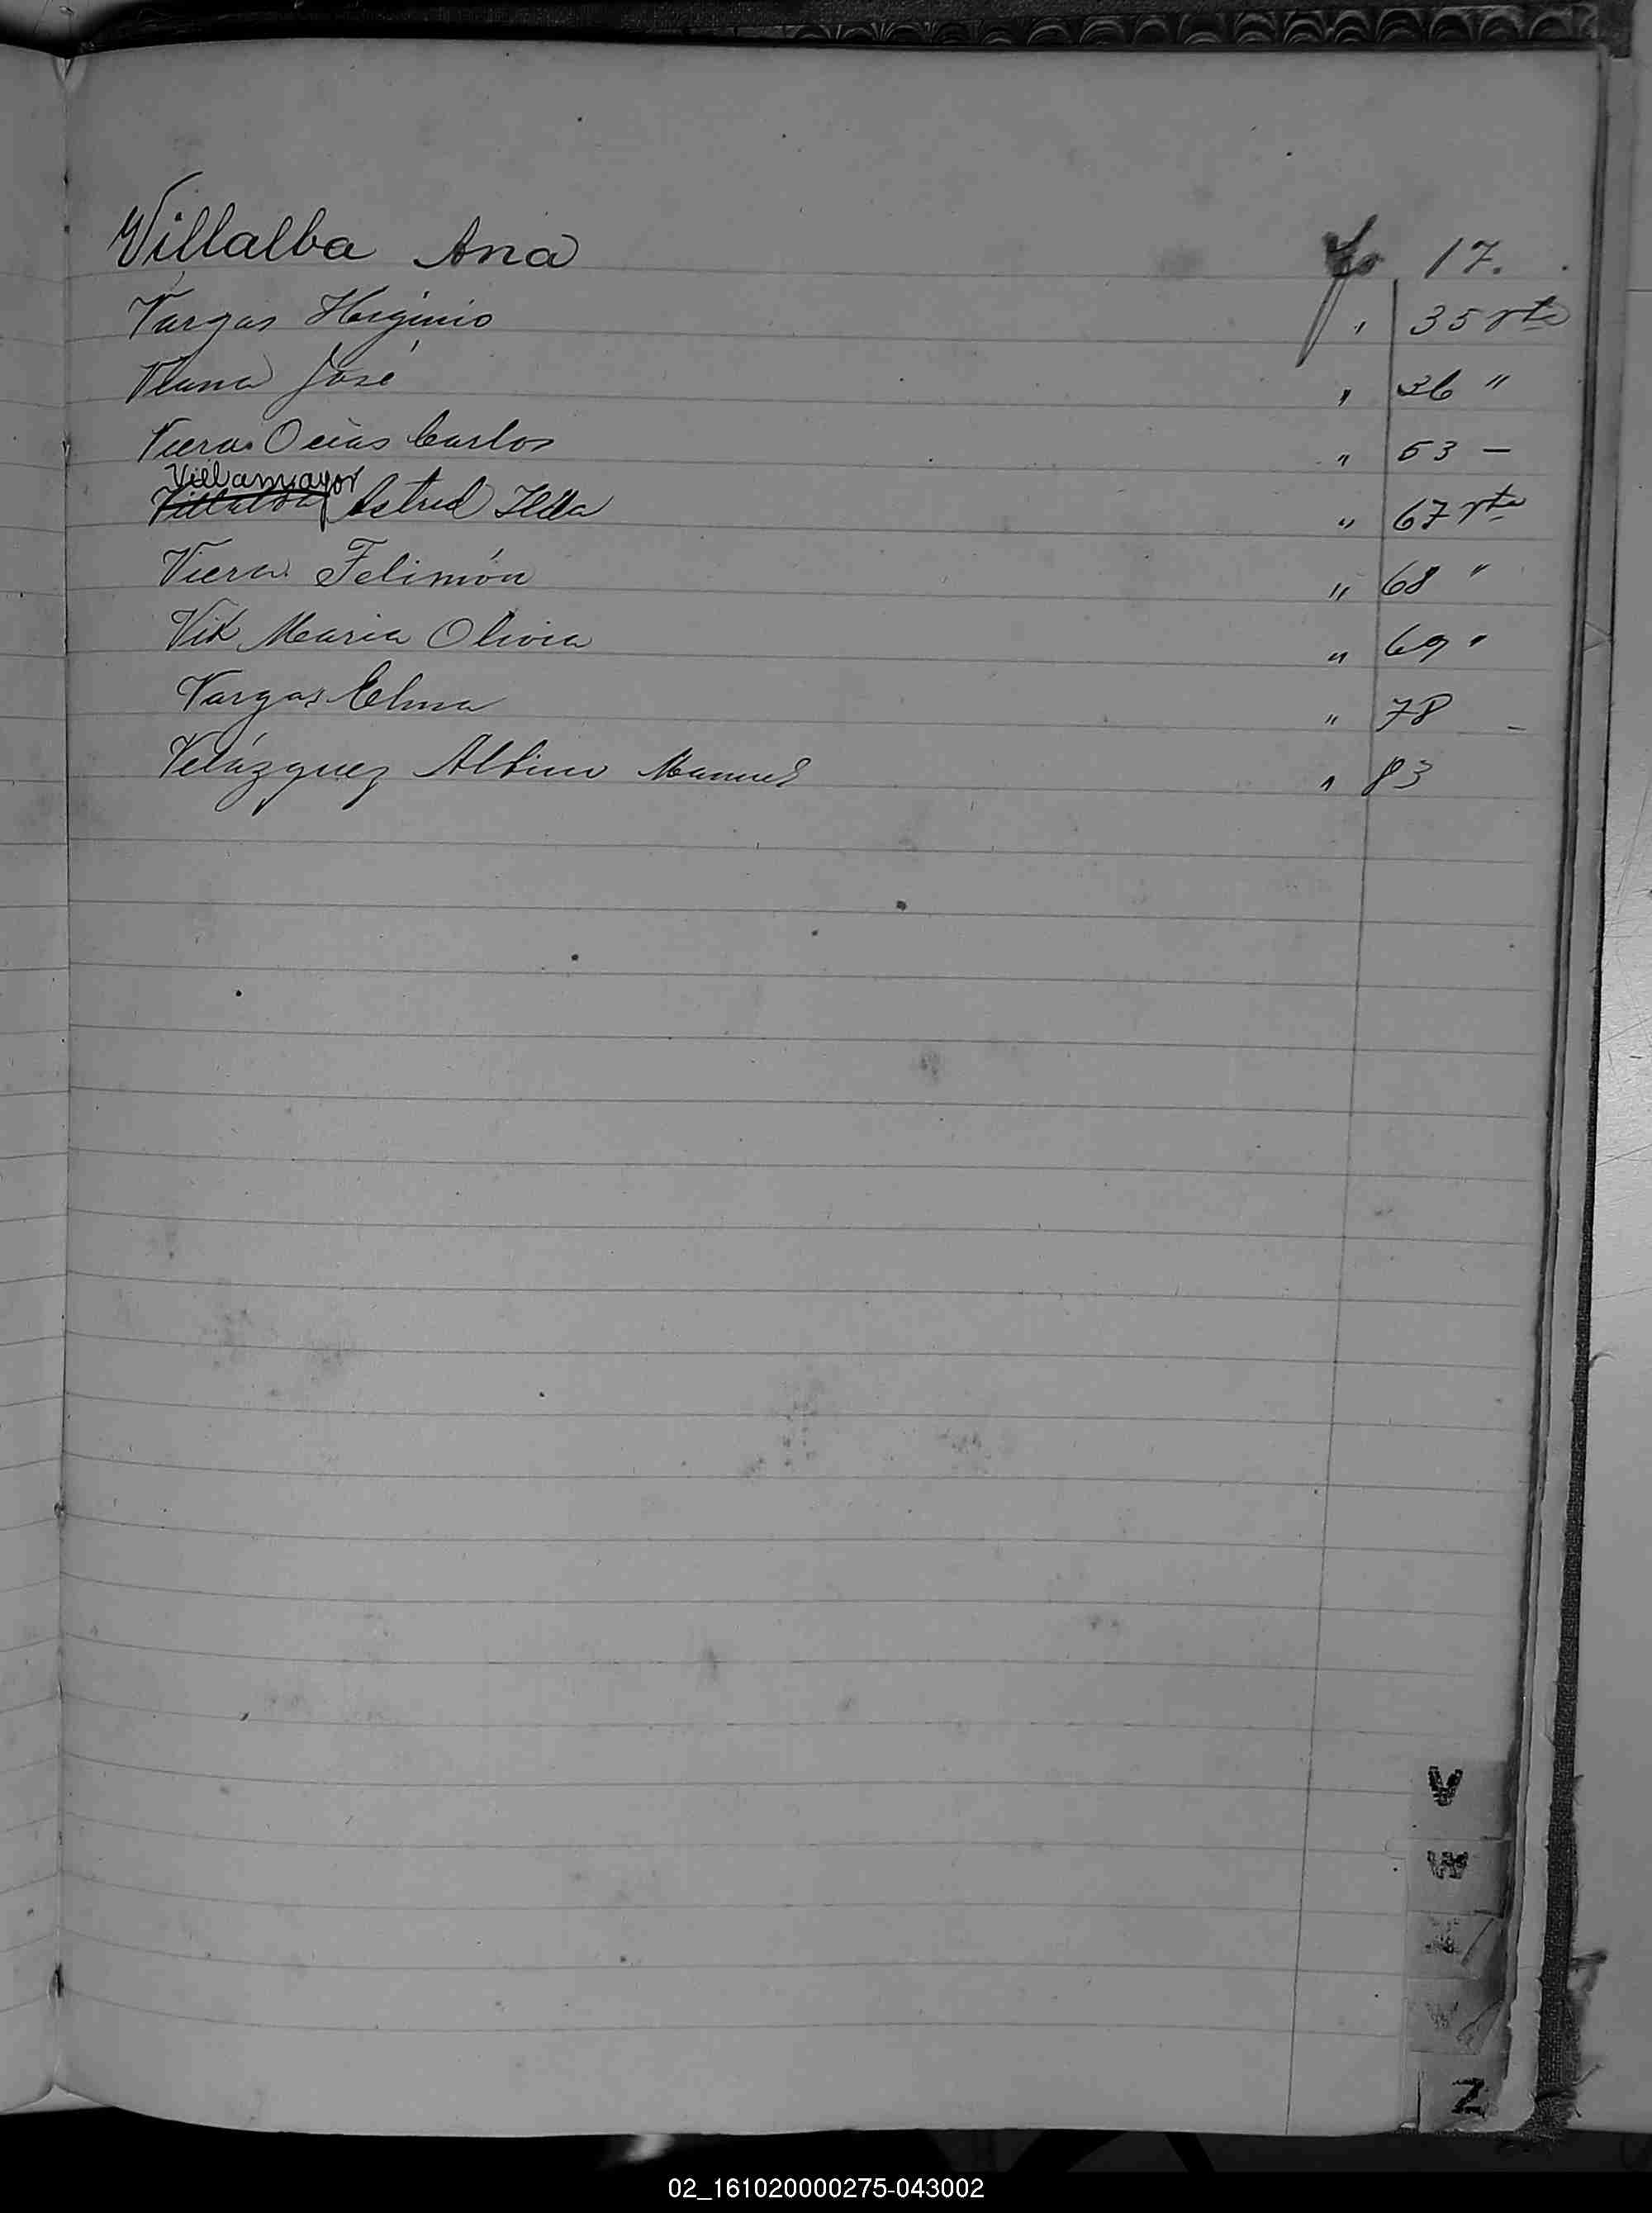 Villalba Ana Fo 17.
Vargas Higinio " 35 vta
Viana José " 36 "
Viera Ocias Carlos " 53 —
Villamayor
Villalba Astrid Ilda " 67 vta
Viera Felimón " 68 "
Vik Maria Olivia " 69 "
Vargas Elma " 78 –
Velázquez Albino Manuel " 83
V
W
Z
02_161020000275-043002